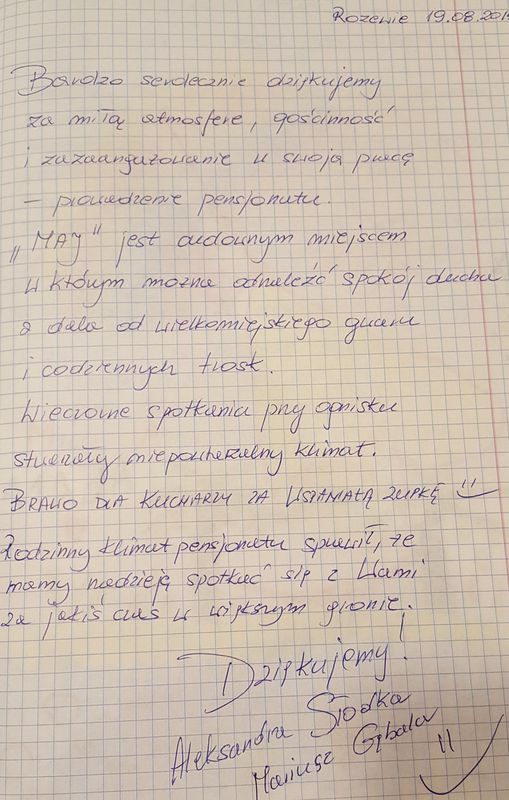 Rozewie 19.08.201
Bardzo serdecznie dziękujemy
za miłą atmosferę, gościnność
i zazaangażowanie w swoją pracę
– prowadzenie pensjonatu.
„MAJ" jest cudownym miejscem
w którym można odnaleźć spokój ducha
z dala od wielkomiejskiego gwaru
i codziennych trosk.
Wieczorne spotkania przy ognisku
stwarzały niepowtarzalny klimat.
BRAWO DLA KUCHARZY ZA WSPANIAŁĄ ZUPKĘ
Rodzinny klimat pensjonatu sprawił, że
mamy nadzieję spotkać się z Wami
za jakiś czas w większym gronie.
Dziękujemy!
Aleksandra Siodka
Mariusz Gębala